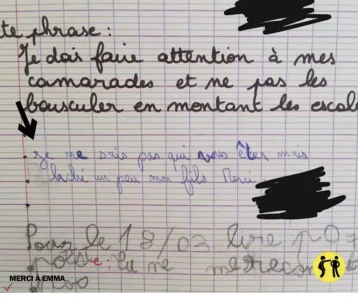 te phrase :
Je dois faire attention à mes
camarades et ne pas les
bousculer en montant les escal
Je ne sais pas qui vous êtes mais
lache un peu mon fils Merci
Pour le 18/03 lire p 97
poésie : lu ne
MERCI À EMMA